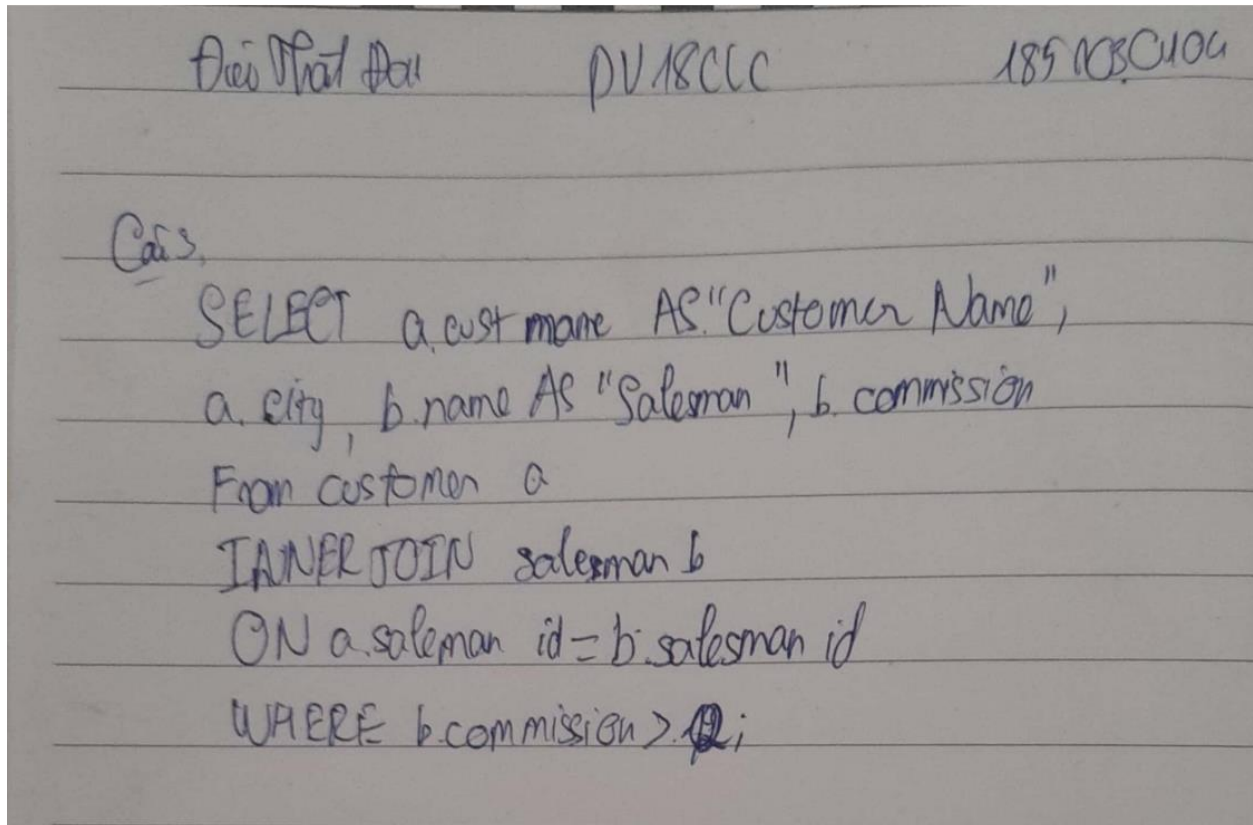 Nhật DV18CLC
Câu 3.
SELECT a.cust mame AS "Customer Name",
a. city, b.name AS "Salesman", b. commission
From customer a
INNER JOIN salesman b
ON a.saleman id = b.salesman id
WHERE b.commission > ;